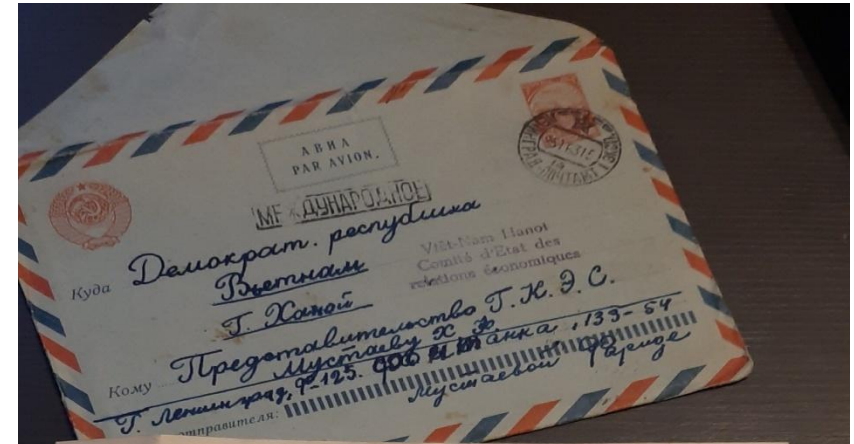 АВИА
PAR AVION.
МЕЖДУНАРОДНОЕ
Куда Демократ. республика
Вьетнам
Г. Ханой
Viêt-Nam Hanoi
Comité d'Etat des
relations économiques
Кому Представительство Г.К.Э.С.
Мустаеву Х.
Г. Ленинград, Ф-125. 133-54
отправителя: Мустаевой Фариде